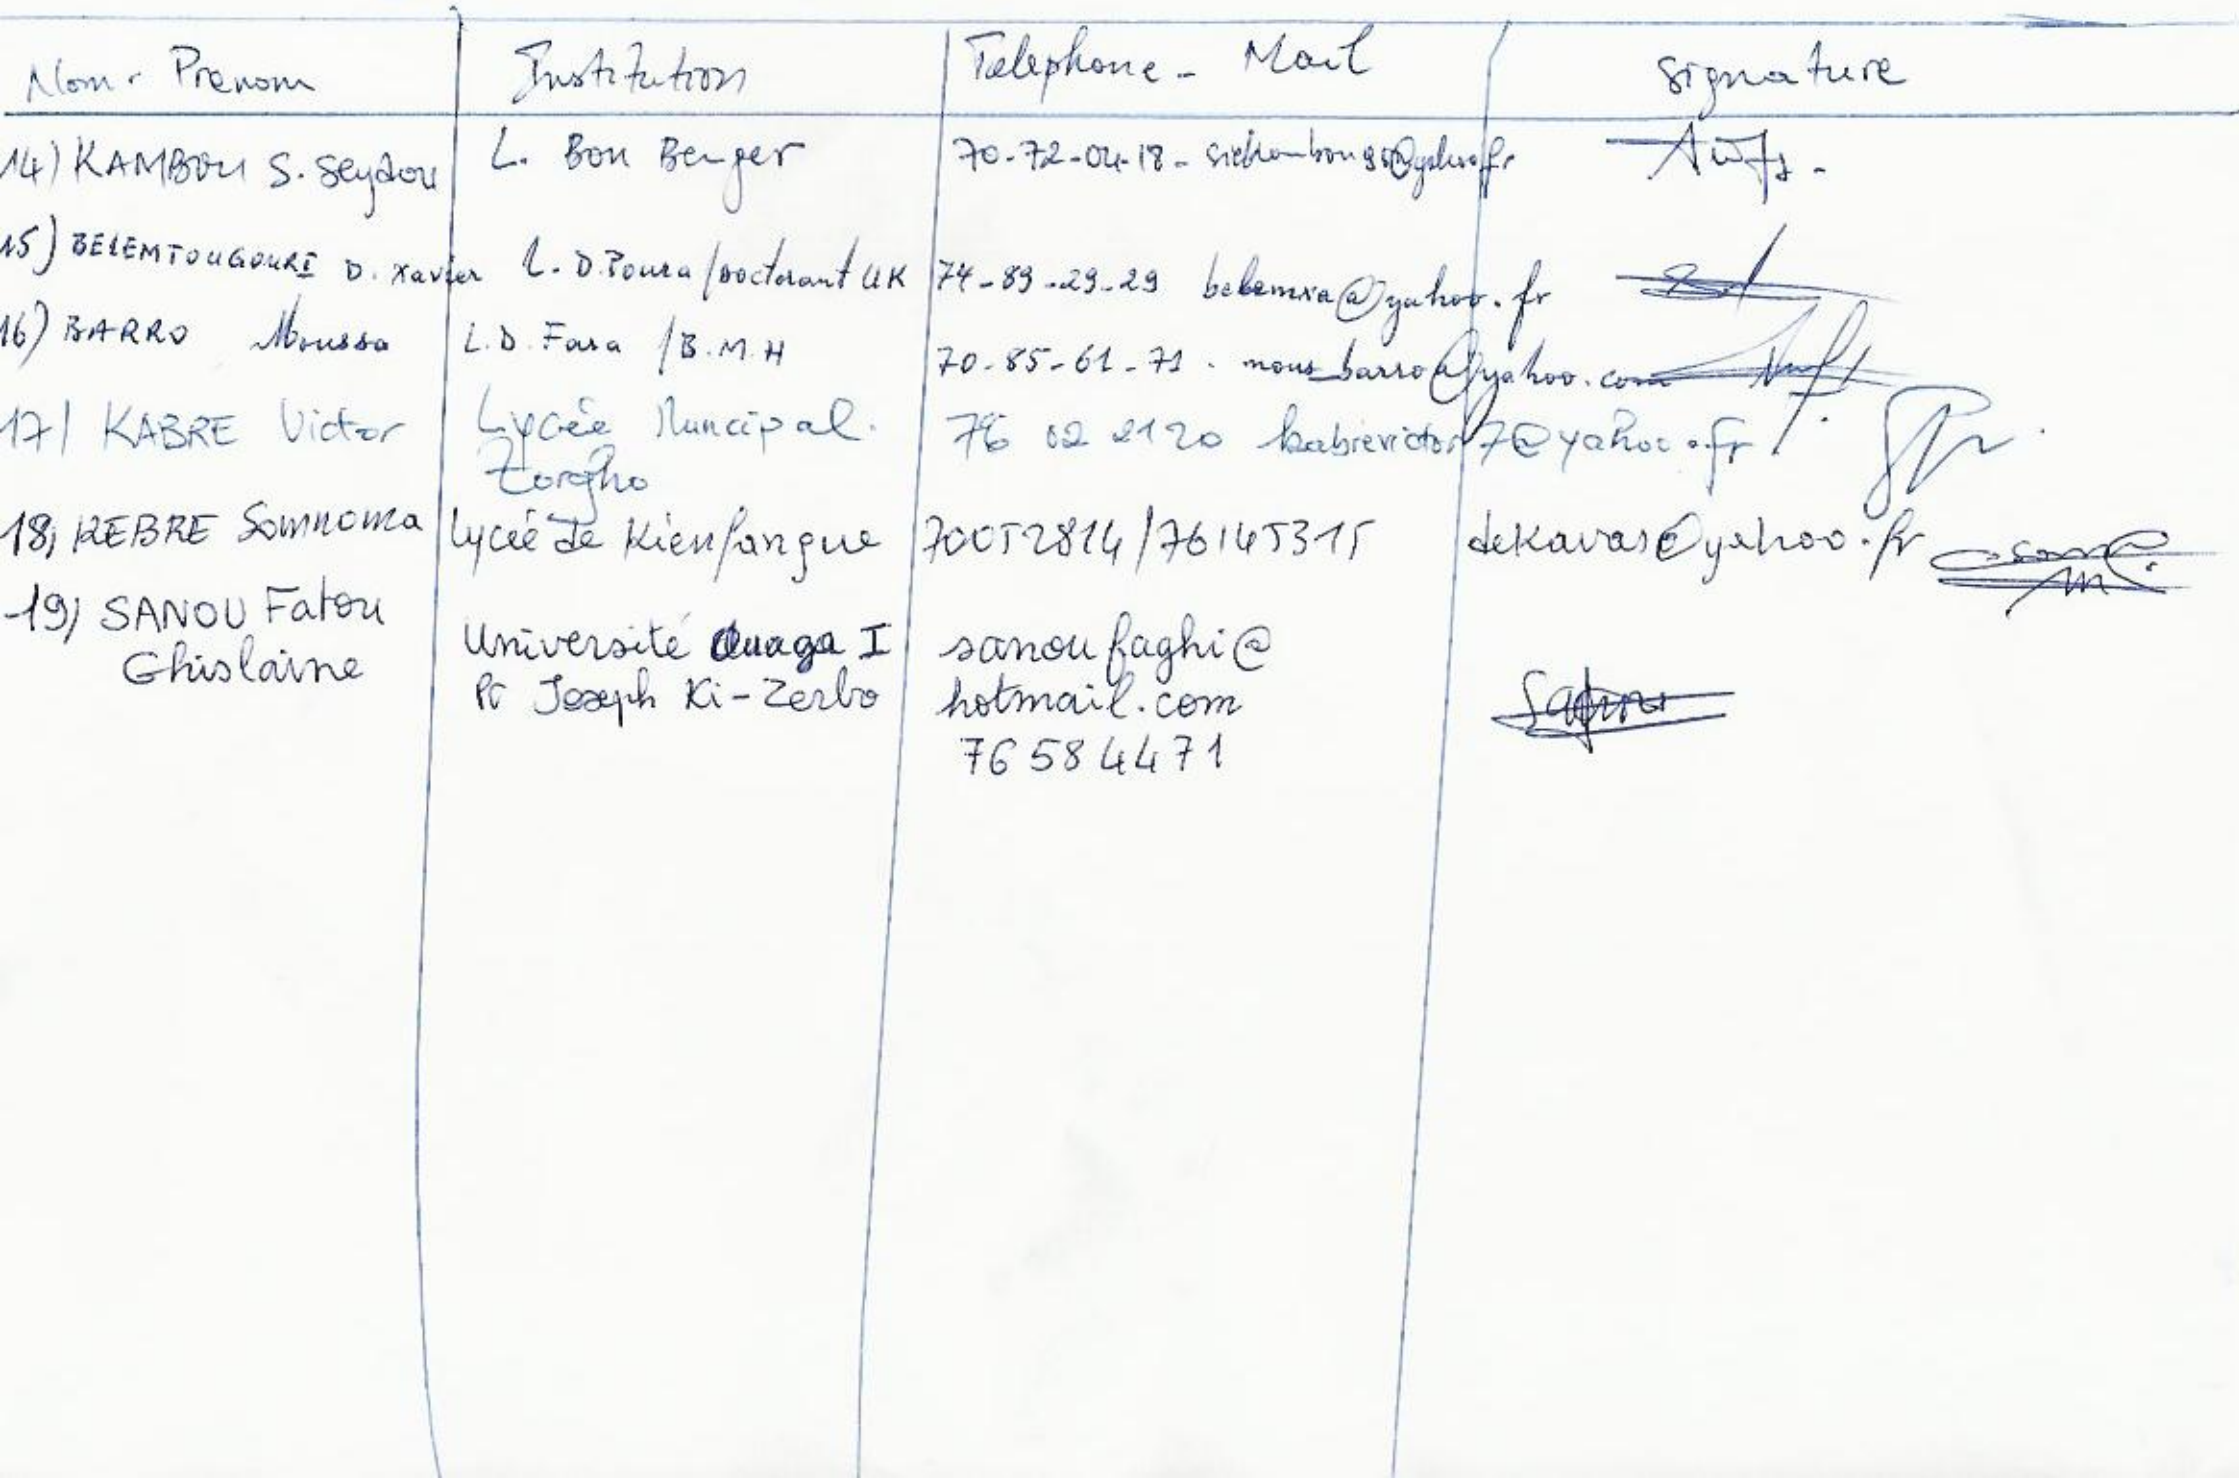 Nom - Prenom Institution Telephone - Mail signature
14) KAMBOU S. Seydou L. Bon Berger 70-72-04-18 -
15) BELEMTOUGOURI D. Xavier L. D. Poura / Doctorant UK 74-89-29-29 belemxa@yahoo.fr
16) BARRO Moussa L.D. Fara / B.M.H 70-85-61-71 . mous_barro@yahoo.com
17/ KABRE Victor Lycée Muncipal. 76 02 21 20 kabrevictor7@yahoo.fr
Zorgho
18) KEBRE Somnoma Lycée de Kienfangue 70052814/76145315 dekavas@yahoo.fr
19) SANOU Fatou
Ghislaine
Université Ouaga I sanoufaghi@
Pr Joseph Ki-Zerbo hotmail.com
76 58 44 71